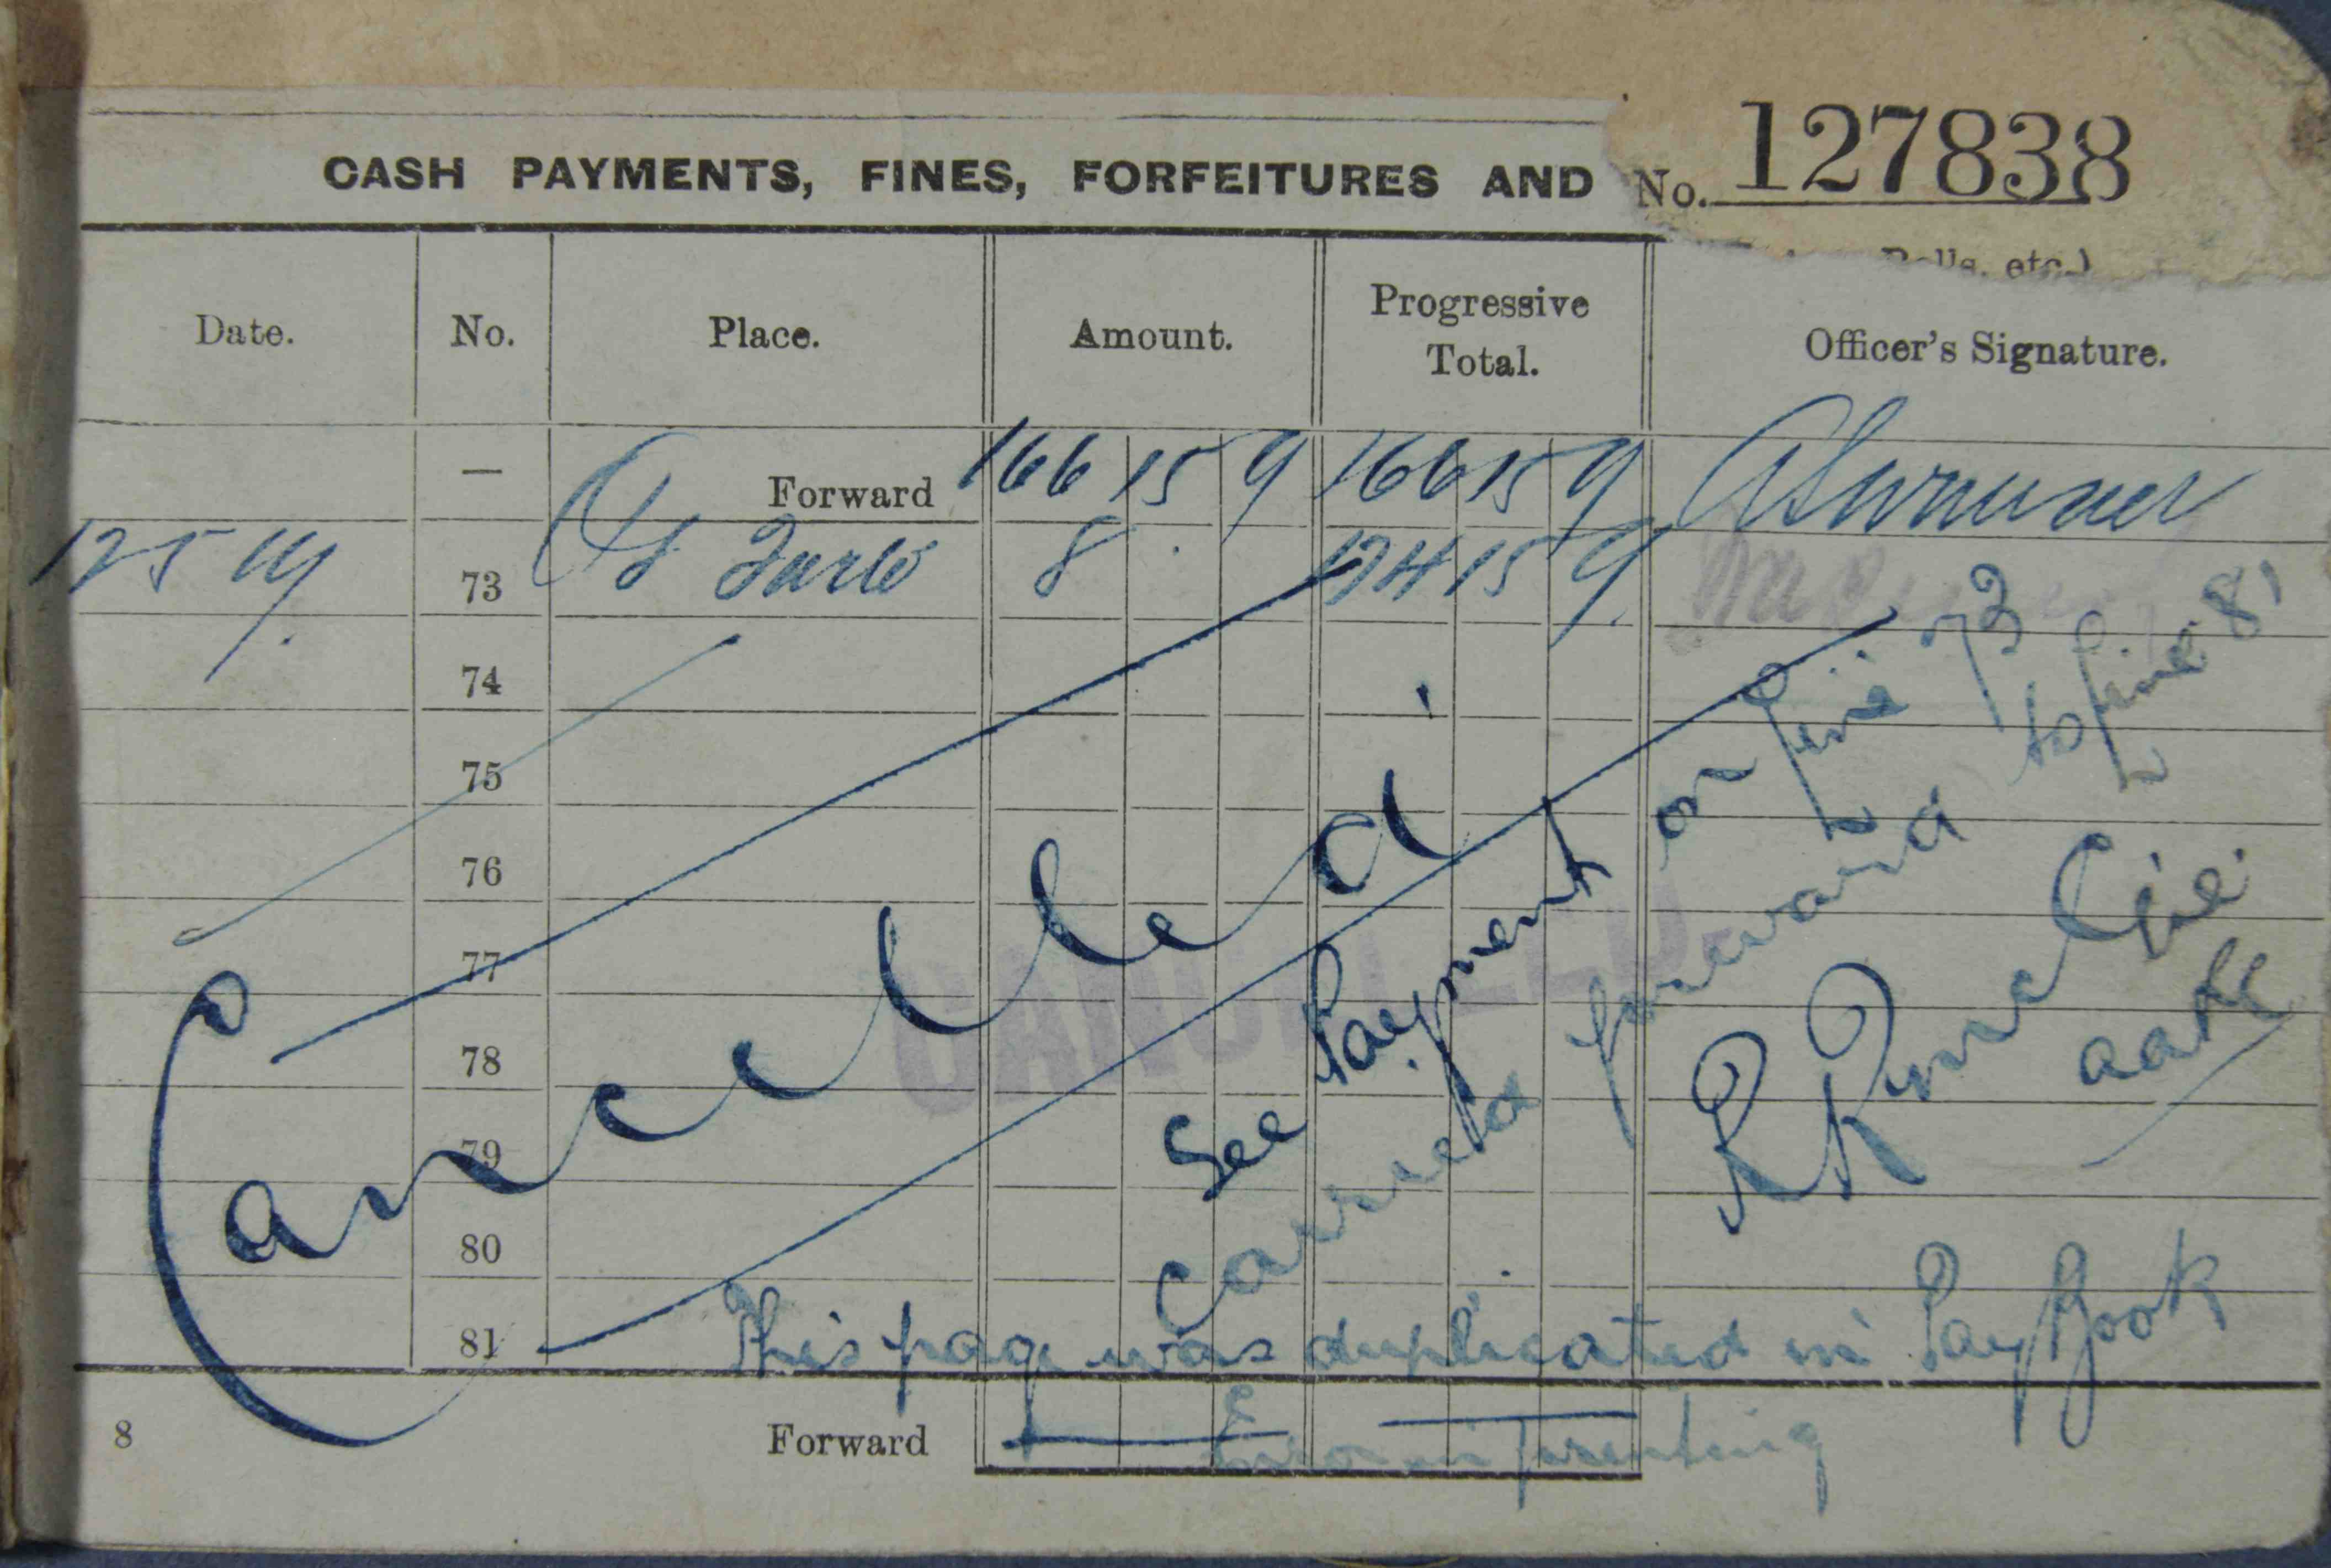 No. 127838
CASH PAYMENTS, FINES, FORFEITURES AND
Rolls, etc.)
Date. No. Place. Amount. Progressive Total. Officer's Signature.
— Forward 166 15 9 166 15 9
12 5 19 73 8 174 15 9
74
75
76
77
78
79
80
81
Cancelled
CANCELLED
See Payment on line 73
Carried forward to line 81
This page was duplicated in Pay Book
Error in printing
8 Forward